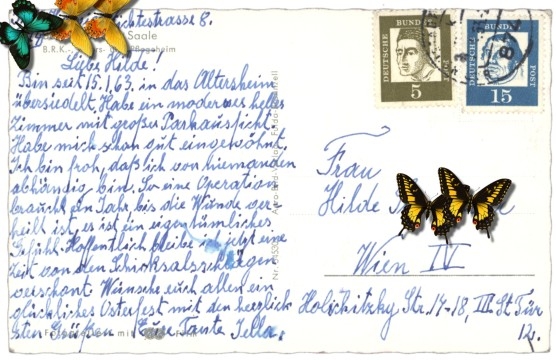 ichtestrasse 8.
Saale
B.R.K. Pflegeheim
Liebe Hilde!
Bin seit 15.1.63. in das Altersheim
übersiedelt. Habe ein modernes helles
Zimmer mit großer Parkaussicht.
Habe mich schon gut eingewöhnt.
Ich bin froh, daß ich von niemanden
abhängig bin. So eine Operation
braucht ein Jahr bis die Wunde ver-
heilt ist, es ist ein eigentümliches
Gefühl. Hoffentlich bleibe ich jetzt eine
Zeit von den Schicksalsschlägen
verschont. Wünsche euch allen ein
glückliches Osterfest mit den herzlich
sten Grüßen Eure Tante Jella.
DEUTSCHE BUNDESPOST
5
DEUTSCHE BUNDESPOST
15
Frau
Hilde
Wien IV
Str. 14-18, III. St. Tür
12.